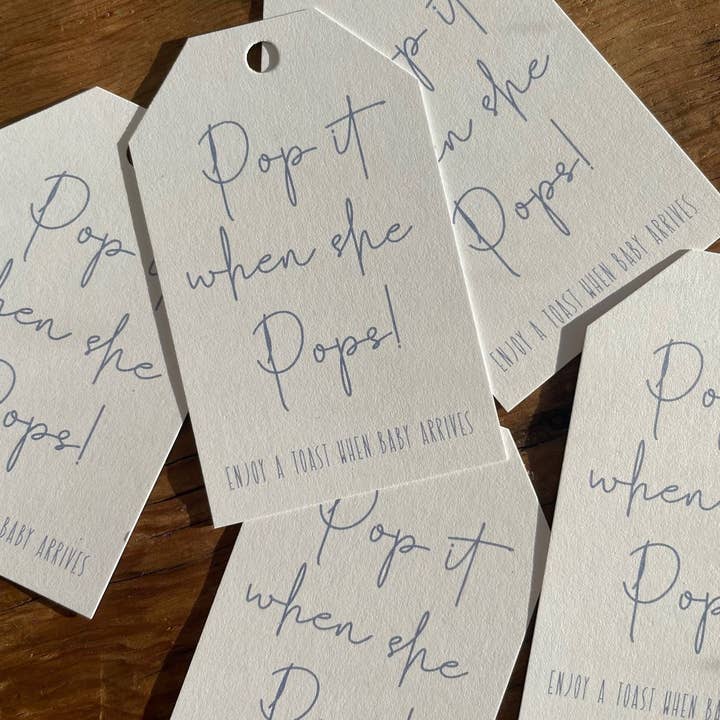 Pop it
when she
Pops!
ENJOY A TOAST WHEN BABY ARRIVES
Pop it
she
Pops!
ENJOY A TOAST WHEN BABY ARRIVES
Pop
she
BABY ARRIVES
Pop it
when she
when
ENJOY A TOAST WHEN